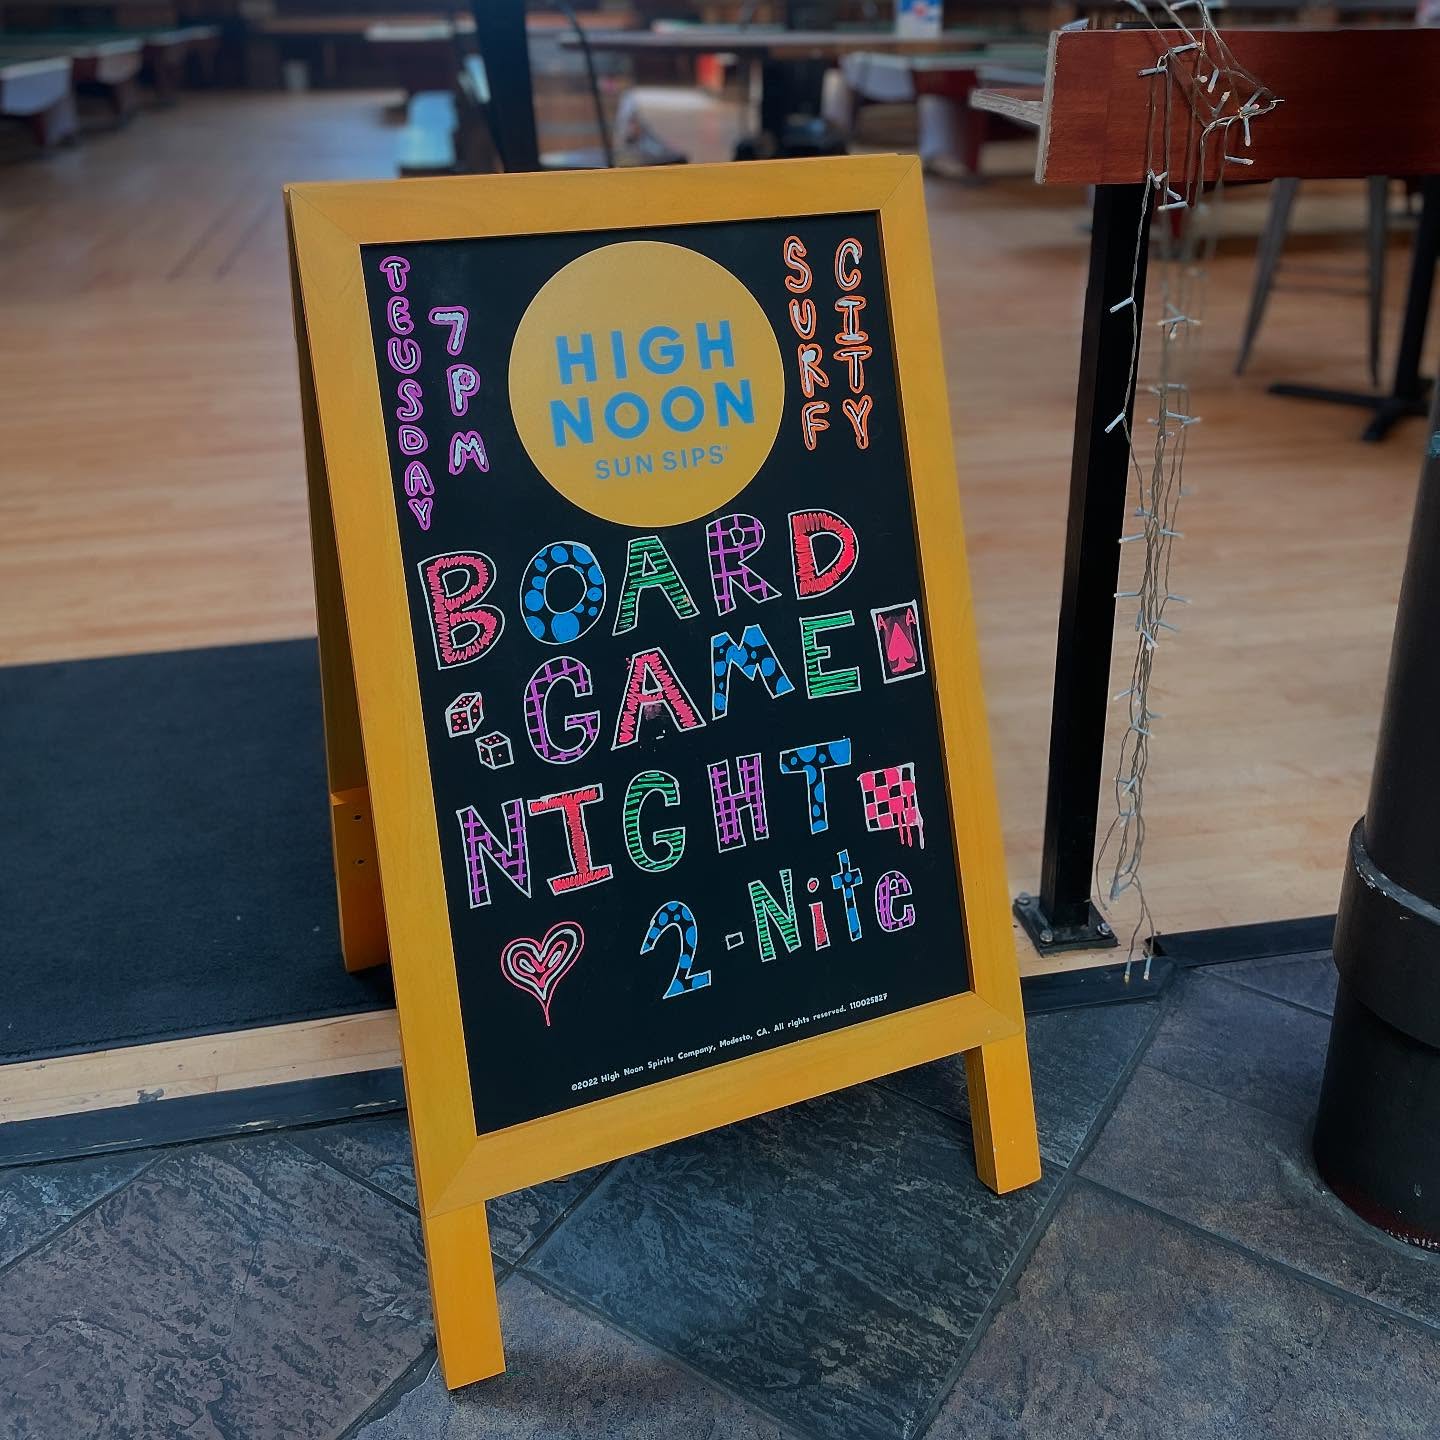 TEUSDAY
7PM
HIGH
NOON
SUN SIPS®
SURF
CITY
BOARD
GAME
A A
NIGHT
2-Nite
©2022 High Noon Spirits Company, Modesto, CA. All rights reserved. 110025827